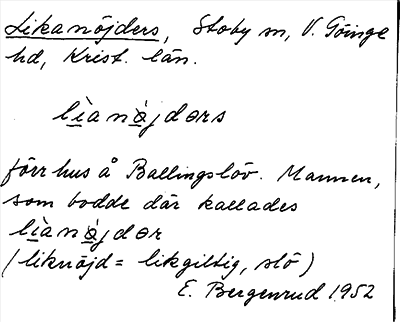 Likanöjders, Stoby sn, V. Göinge
hd, Krist. län.
lìanǿjdərs
förr hus å Ballingslöv. Mannen,
som bodde där kallades
lìanǿjdər
(liknöjd = likgiltig, slö)
E. Bergenrud 1952